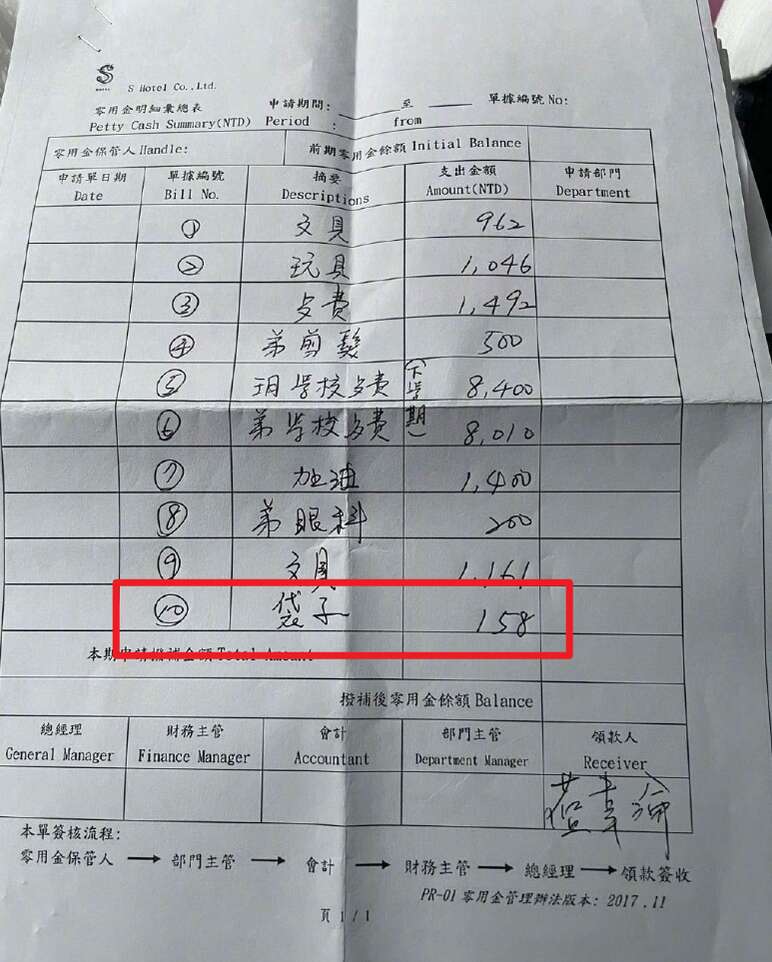 S
S Hotel Co.,Ltd.
零用金明細彙總表 申請期間: 至 單據編號 No:
Petty Cash Summary(NTD) Period : from
零用金保管人 Handle: 前期零用金餘額 Initial Balance
申請單日期 單據編號 摘要 支出金額 申請部門
Date Bill No. Descriptions Amount(NTD) Department
① 文具 962
② 玩具 1,046
③ 歺費 1,492
④ 弟剪髮 500
⑤ 玥学校歺費 (下学期) 8,400
⑥ 弟学校歺費 8,010
⑦ 加油 1,400
⑧ 弟眼科 200
⑨ 文具 1,161
⑩ 袋子 158
本期申請撥補金額 Total Amount
撥補後零用金餘額 Balance
總經理 財務主管 會計 部門主管 領款人
General Manager Finance Manager Accountant Department Manager Receiver
本單簽核流程:
零用金保管人 → 部門主管 → 會計 → 財務主管 → 總經理 → 領款簽收
PR-01 零用金管理辦法版本: 2017.11
頁 1 / 1